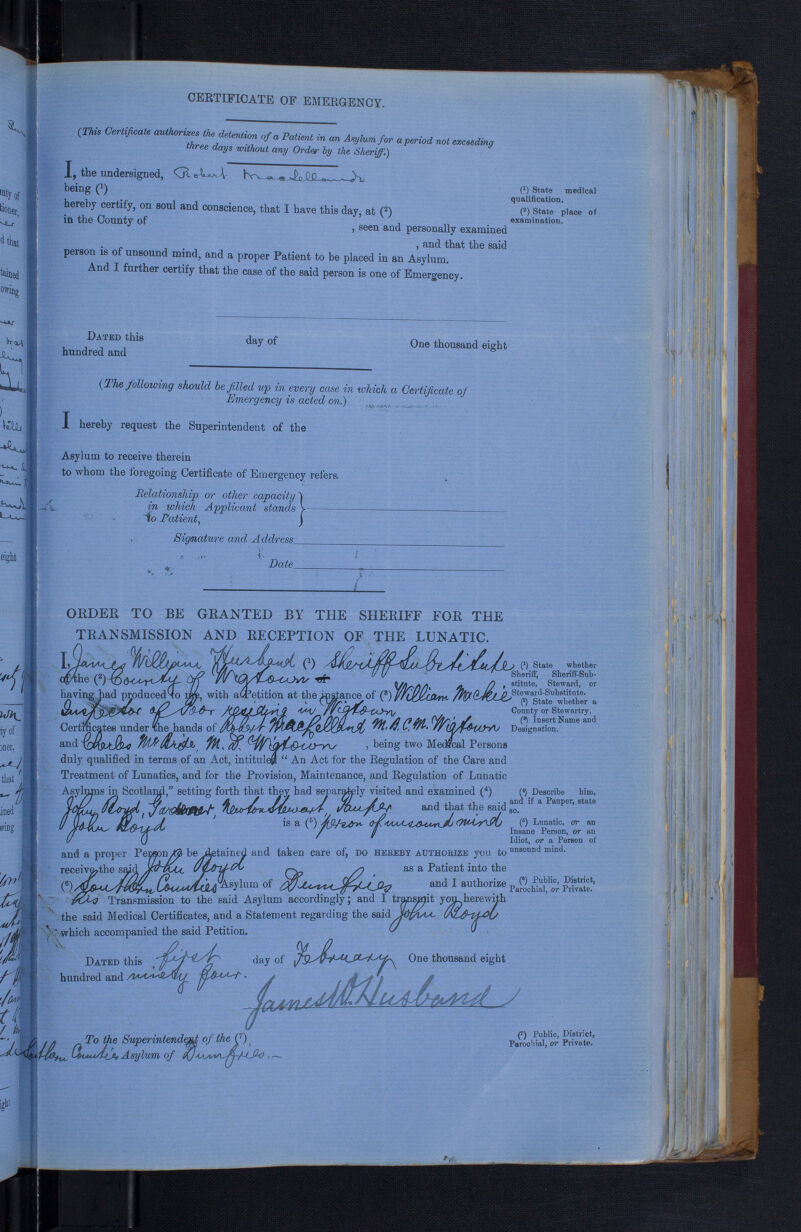 CERTIFICATE OF EMERGENCY.
(This Certificate authorizes the detention of a Patient in an Asylum for a period not exceeding
three days without any Order by the Sheriff.)
I, the undersigned, Robert Maclelland
being (¹)
(¹) State medical
qualification.
hereby certify, on soul and conscience, that I have this day, at (²)
(²) State place of
examination.
in the County of , seen and personally examined
, and that the said
person is of unsound mind, and a proper Patient to be placed in an Asylum.
And I further certify that the case of the said person is one of Emergency.
DATED this day of One thousand eight
hundred and
(The following should be filled up in every case in which a Certificate of
Emergency is acted on.)
I hereby request the Superintendent of the
Asylum to receive therein
to whom the foregoing Certificate of Emergency refers.
Relationship or other capacity
in which Applicant stands
to Patient,
Signature and Address
Date
ORDER TO BE GRANTED BY THE SHERIFF FOR THE
TRANSMISSION AND RECEPTION OF THE LUNATIC.
I, James William Husband (¹) Sheriff Substitute
of the (²) County of Wigtown
having had produced to me, with a Petition at the instance of (³) William Mackie
Inspector of Poor residing in Wigtown
Certificates under the hands of Robert Maclelland M.B.C.M. Wigtown
and Charles McBride, M.D. Wigtown , being two Medical Persons
(¹) State whether
Sheriff, Sheriff-Sub-
stitute, Steward, or
Steward-Substitute.
(²) State whether a
County or Stewartry.
(³) Insert Name and
Designation.
duly qualified in terms of an Act, intituled "An Act for the Regulation of the Care and
Treatment of Lunatics, and for the Provision, Maintenance, and Regulation of Lunatic
Asylums in Scotland," setting forth that they had separately visited and examined (⁴)
John Boyd, Gardener, Newton Stewart, Pauper and that the said
John Boyd is a (⁵) person of unsound mind
(⁴) Describe him,
and if a Pauper, state
so.
(⁵) Lunatic, or an
Insane Person, or an
Idiot, or a Person of
unsound mind.
and a proper Person to be detained and taken care of, DO HEREBY AUTHORIZE you to
receive the said John Boyd as a Patient into the
(⁶) Southern Counties Asylum of Dumfries and I authorize
his Transmission to the said Asylum accordingly; and I transmit you herewith
(⁶) Public, District,
Parochial, or Private.
the said Medical Certificates, and a Statement regarding the said John Boyd
which accompanied the said Petition.
DATED this first day of February One thousand eight
hundred and ninety four.
James W. Husband
To the Superintendent of the (⁷)
Southern Counties Asylum of Dumfries.
(⁷) Public, District,
Parochial, or Private.